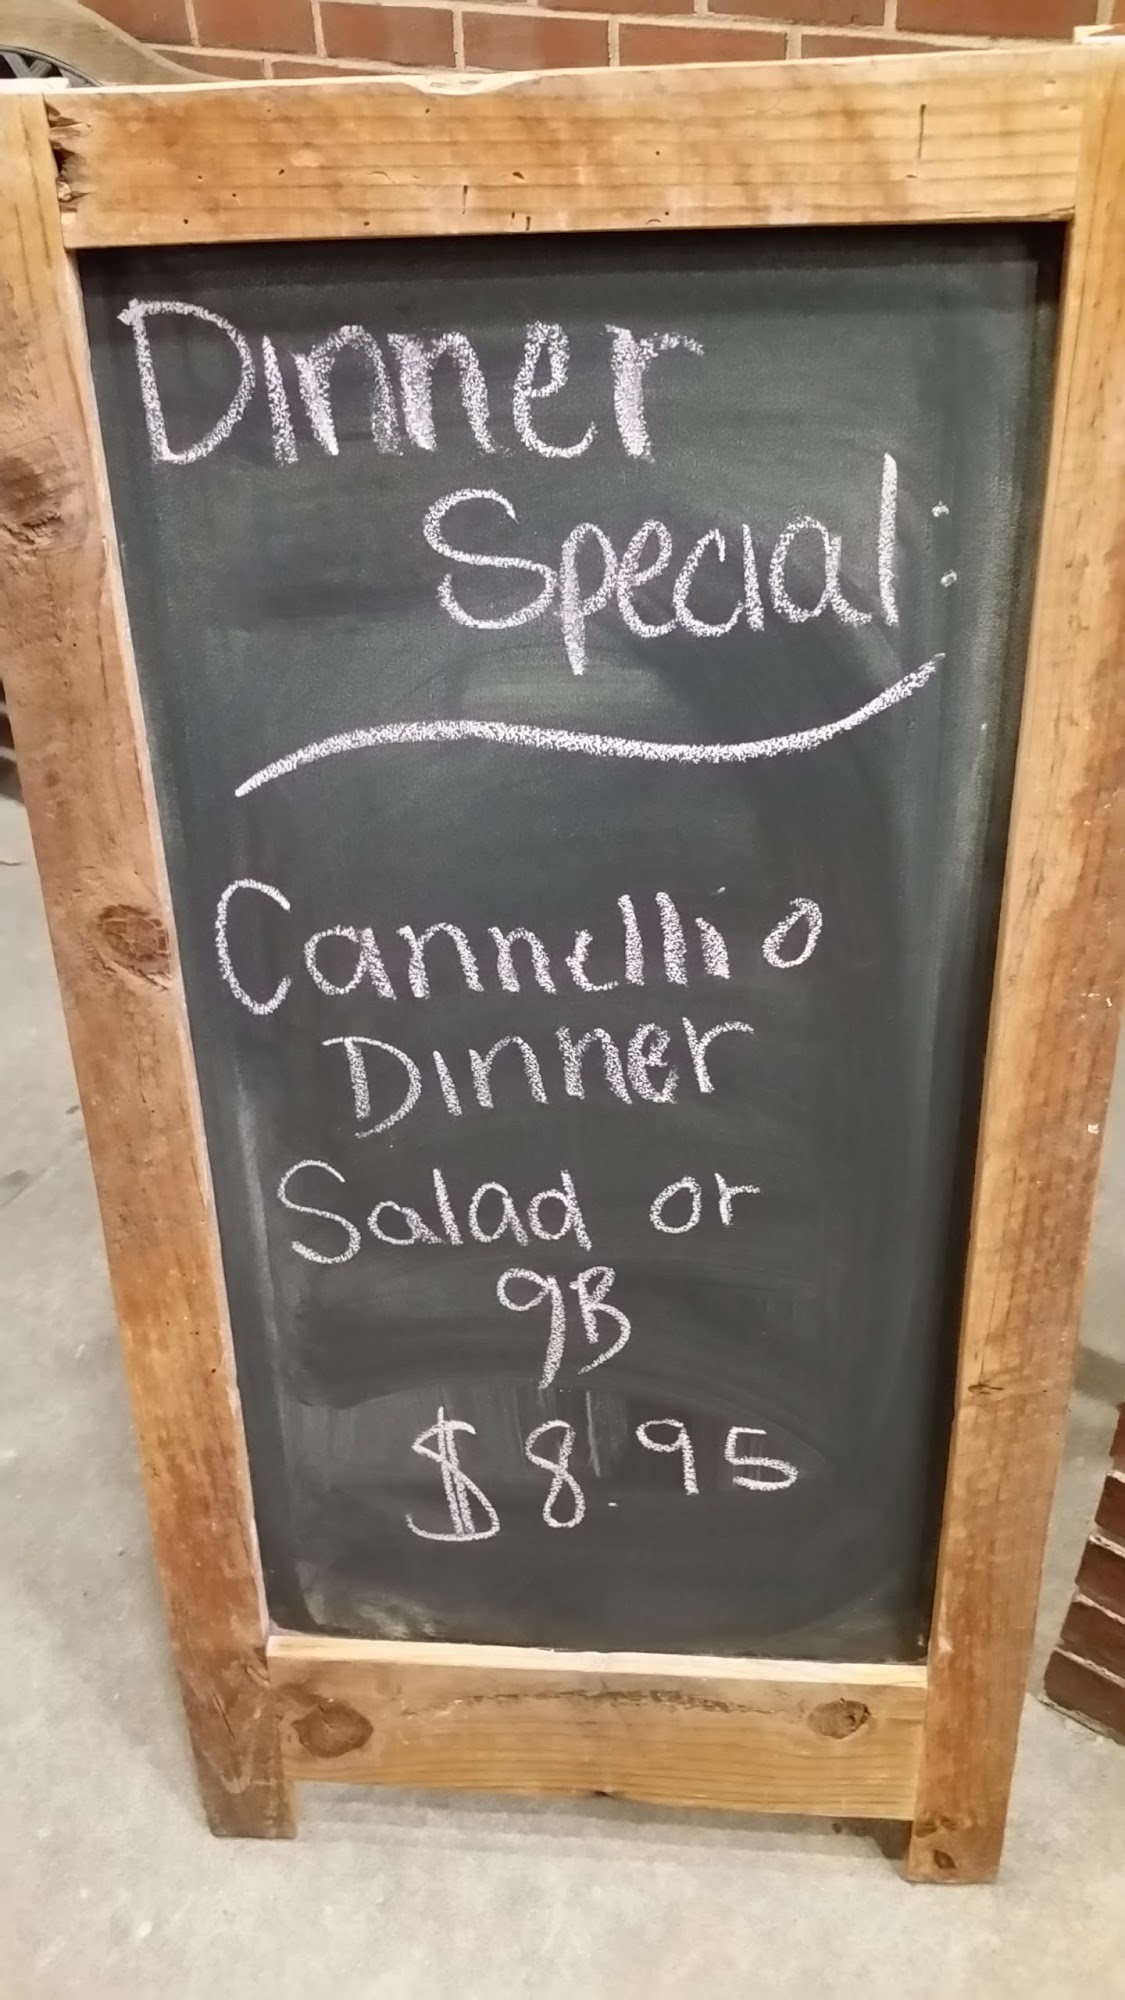 Dinner
Special:
Cannellio
Dinner
Salad or
gB
$8.95